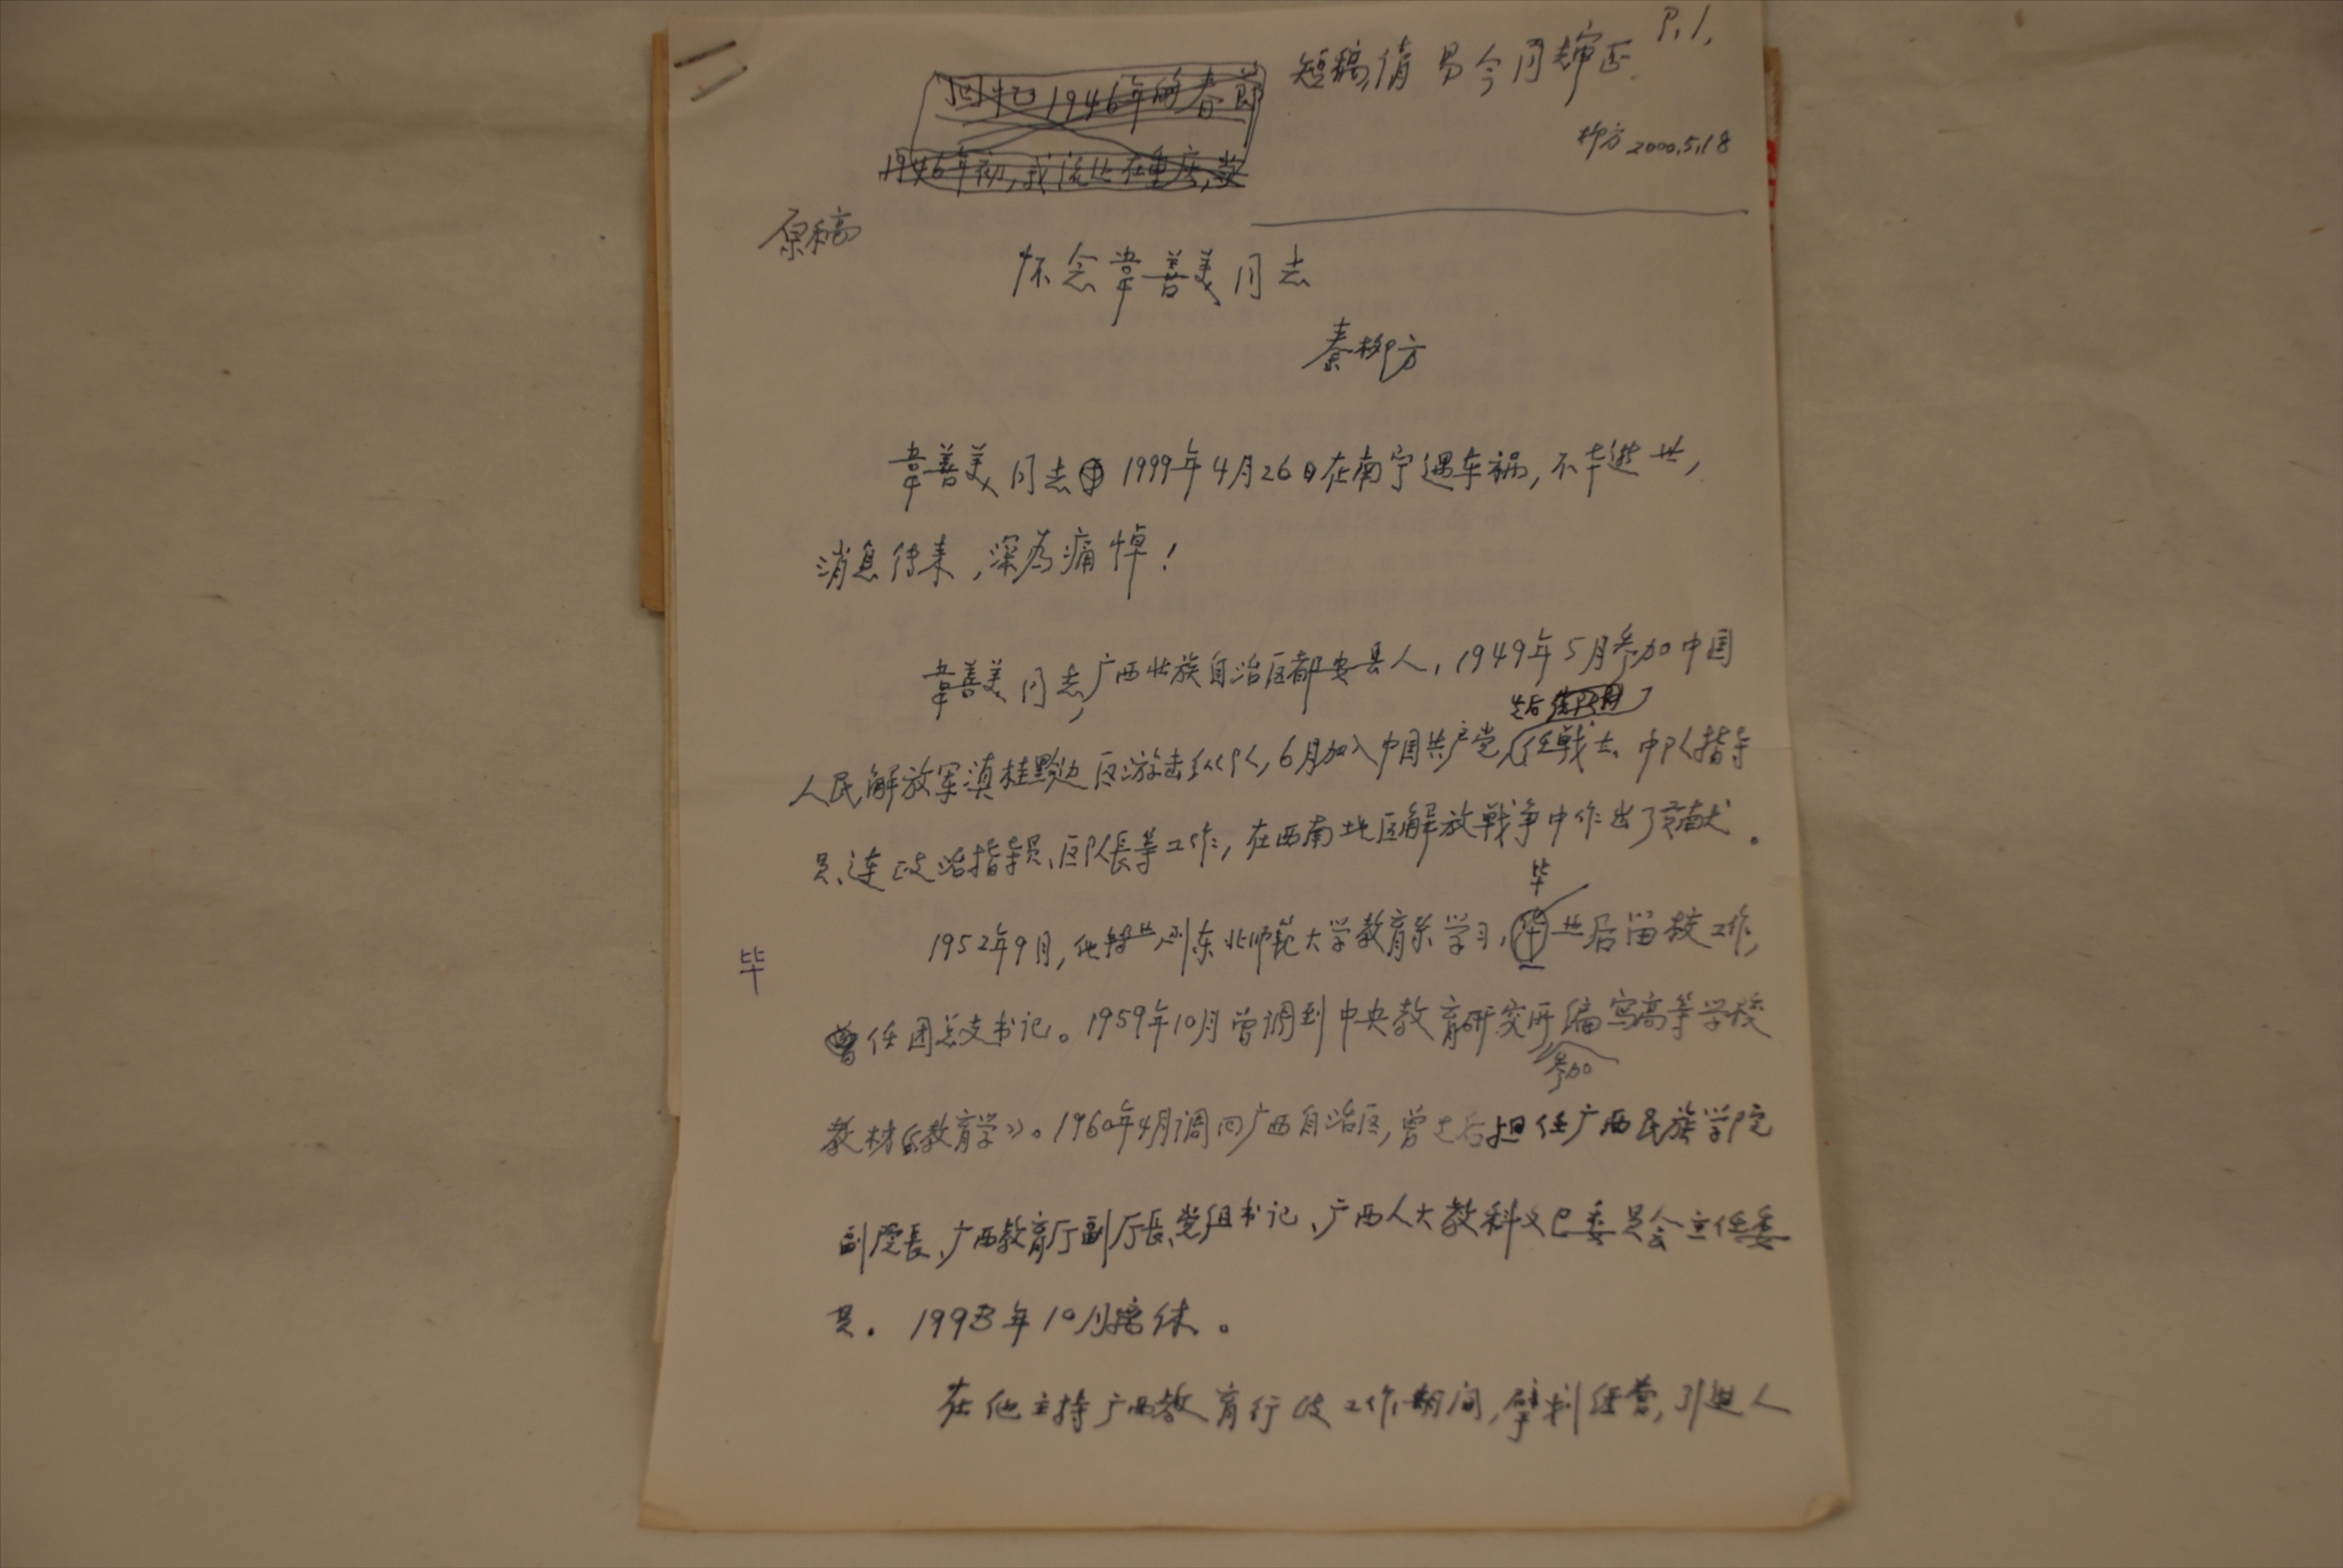 P.1.
短稿,请易今同志审正.
柳方 2000.5.18
回忆1946年的春节
1946年初,我流亡在重庆,
原稿
怀念韦善美同志
秦柳方
韦善美同志 1999年4月26日在南宁遇车祸,不幸逝世,
消息传来,深为痛悼!
韦善美同志,广西壮族自治区都安县人,1949年5月参加中国
先后
人民解放军滇桂黔边区游击纵队,6月加入中国共产党,任战士、中队指导
员、连政治指导员、区队長等工作,在西南地区解放战争中作出了贡献。
毕
1952年9月,他 到东北师范大学教育系学习,毕业后留校工作,
毕
曾任团总支书记。1959年10月曾调到中央教育研究所编写高等学校
参加
教材《教育学》。1960年4月调回广西自治区,曾先后担任广西民族学院
副院長、广西教育厅副厅長、党组书记、广西人大教科文卫委员会主任委
员. 1993年10月离休。
在他主持广西教育行政工作期间,擘划经营,引进人